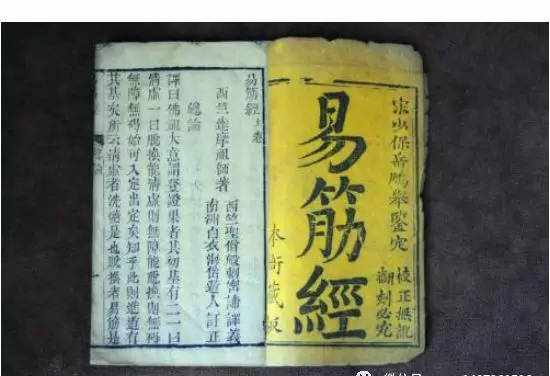 宋少保岳鵬舉鑒定
校正無訛
翻刻必究
易筋經
本衙藏板
易筋經上卷
西竺達摩祖師著
西竺聖僧般剌密諦譯義
總論
譯曰佛祖大意謂登證果者其初基有二一曰
清虛一曰脫換能清虛則無障能脫換則無碍
無障無碍始可入定出定矣知乎此則進道有
其基矣所云清虛者洗髓是也脫換者易筋是